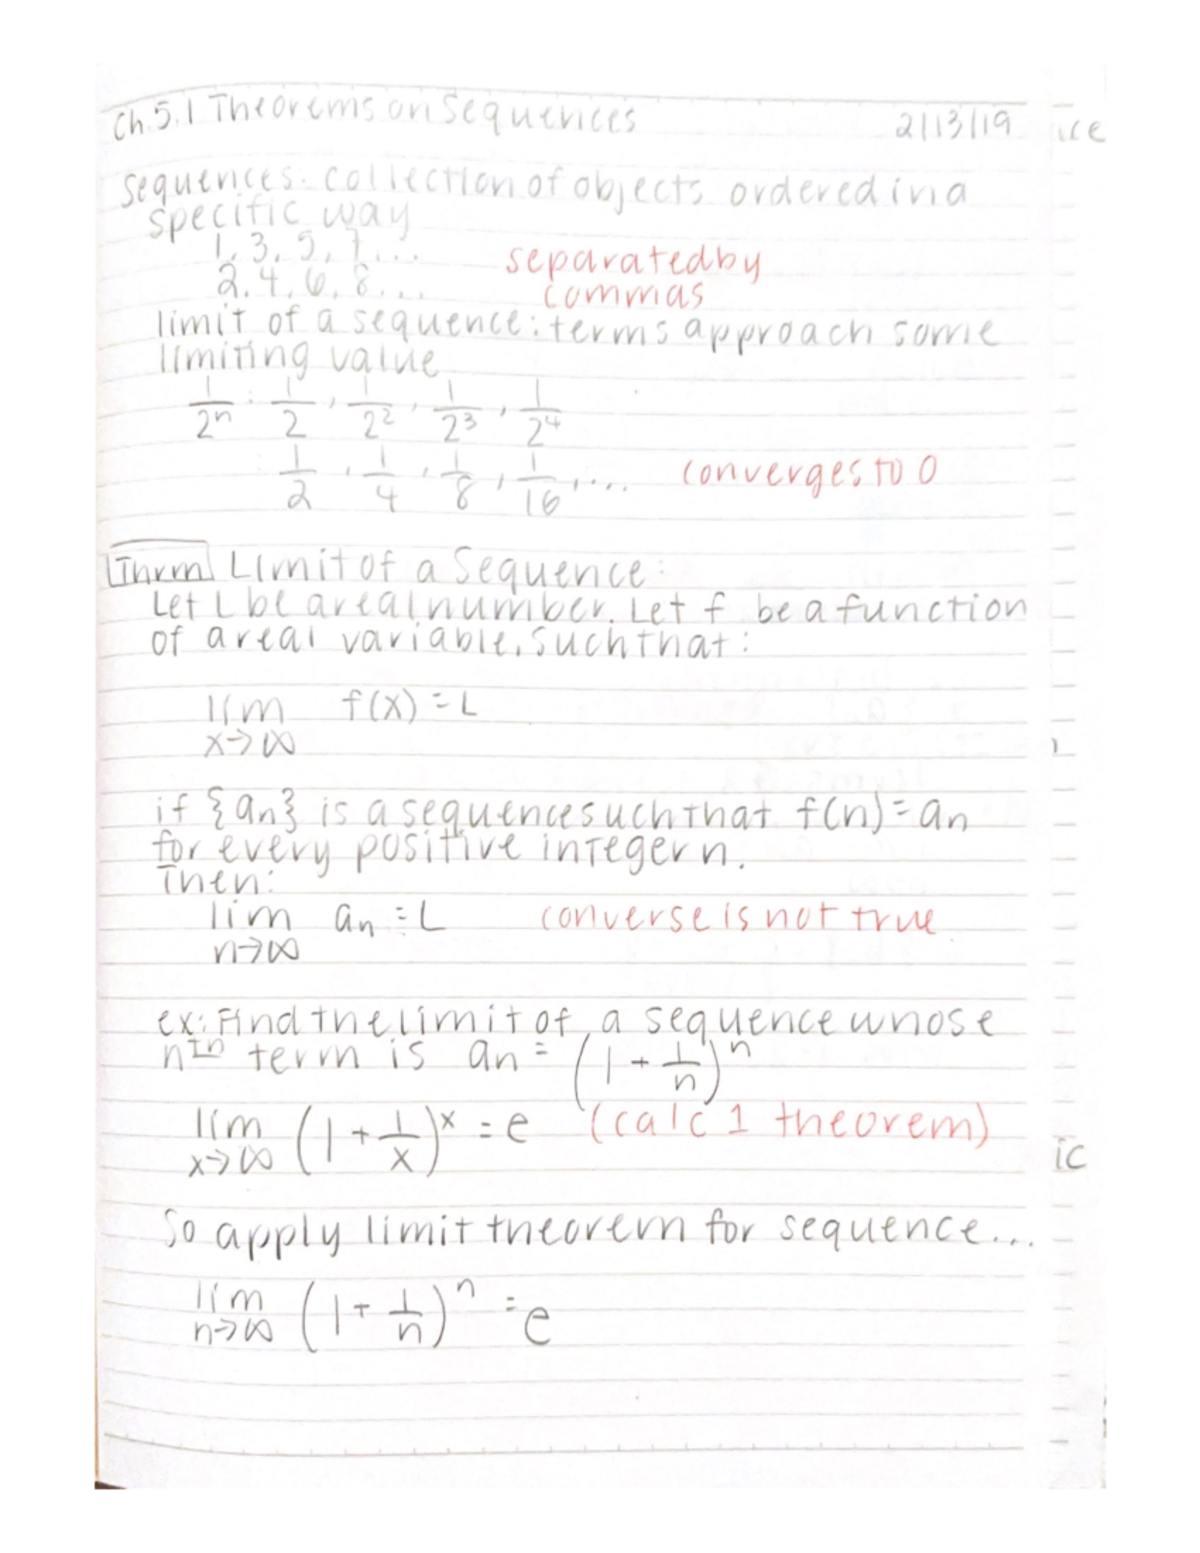 Ch.5.1 Theorems on Sequences 2/13/19
Sequences: collection of objects ordered in a
specific way
1, 3, 5, 7, ...
separated by
2, 4, 6, 8, ...
commas
limit of a sequence: terms approach some
limiting value
1/2^n : 1/2 , 1/2^2 , 1/2^3 , 1/2^4
1/2 , 1/4 , 1/8 , 1/16 , .... converges to 0
Thrm Limit of a Sequence:
Let L be a real number. Let f be a function
of a real variable, such that:
lim f(x) = L
x→∞
if {an} is a sequence such that f(n) = an
for every positive integer n.
Then:
lim an = L converse is not true
n→∞
ex: Find the limit of a sequence whose
nth term is an = (1 + 1/n)^n
lim (1 + 1/x)^x = e (calc 1 theorem)
x→∞
So apply limit theorem for sequence...
lim (1 + 1/n)^n = e
n→∞
ic